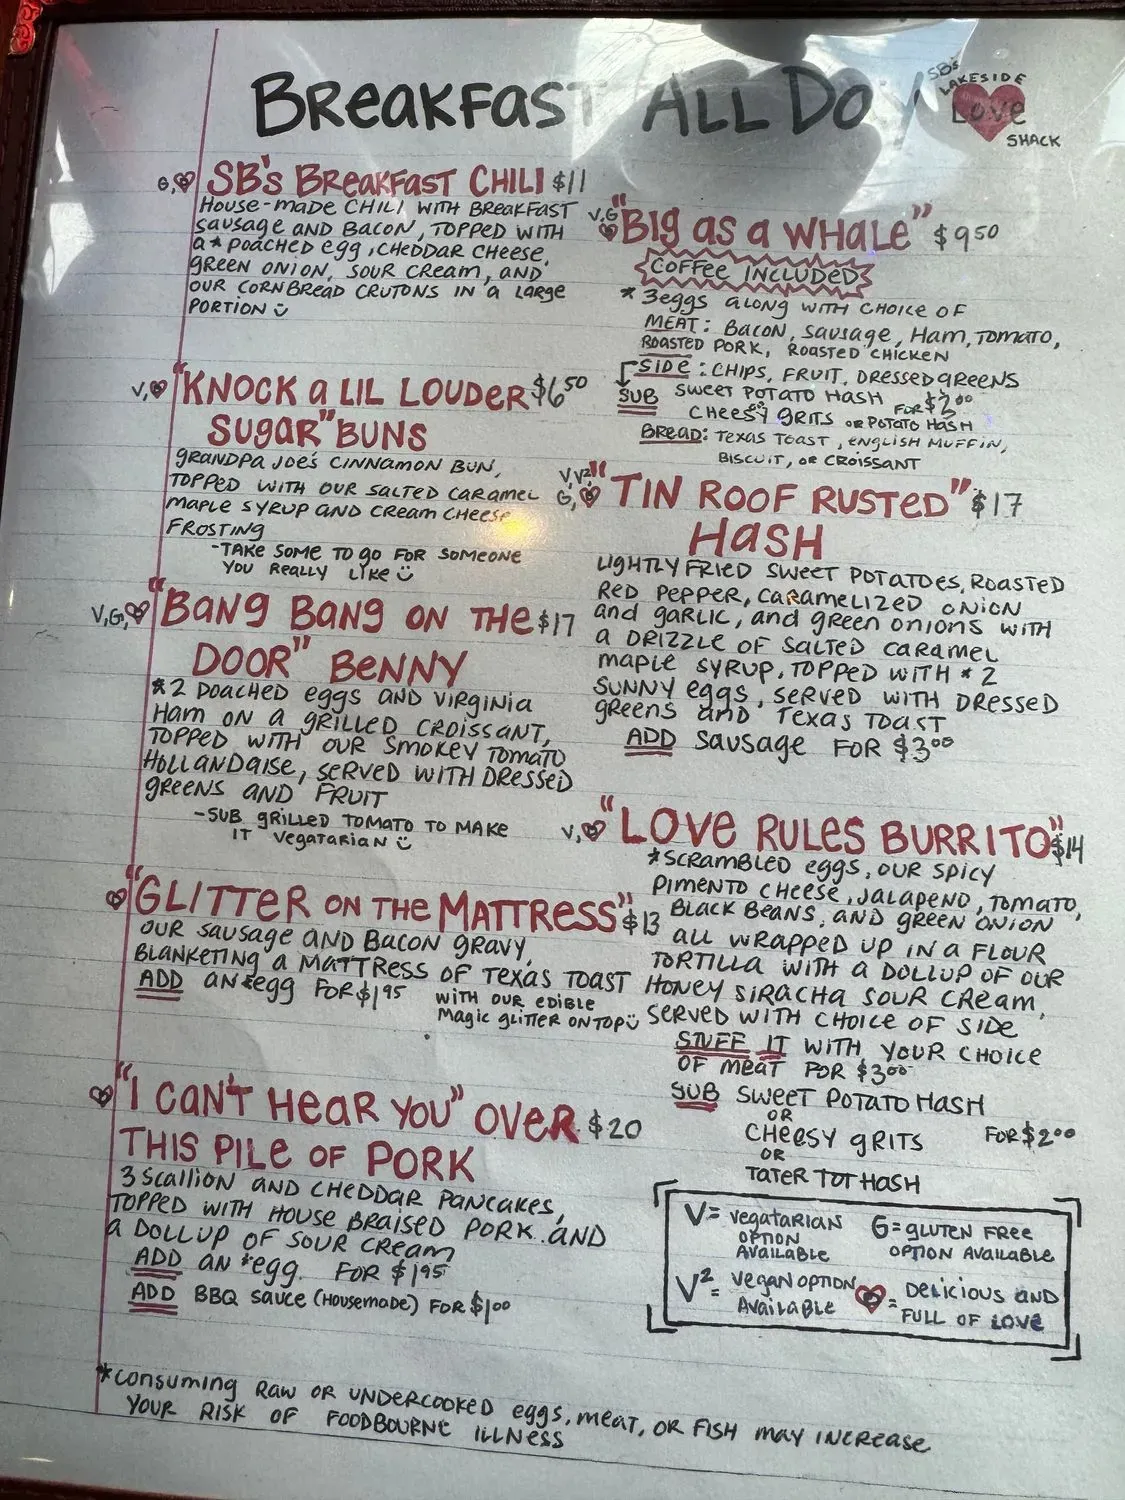 BREAKFAST ALL DAY
SB's
LAKESIDE
LOVE
SHACK
G, SB's BREAKFAST CHILI $11
HOUSE-MADE CHILI WITH BREAKFAST
SAUSAGE AND BACON, TOPPED WITH
a * POACHED egg, CHEDDAR CHEESE,
GREEN ONION, SOUR CREAM, AND
OUR CORNBREAD CRUTONS IN a LARGE
PORTION
V, "KNOCK a LIL LOUDER $6.50
SUGAR" BUNS
GRANDPA JOE'S CINNAMON BUN,
TOPPED WITH OUR SALTED CARAMEL
MAPLE SYRUP AND CREAM CHEESE
FROSTING
-TAKE SOME TO GO FOR SOMEONE
YOU REALLY LIKE
V,G, "BANG BANG ON THE $17
DOOR" BENNY
*2 POACHED eggs AND VIRGINIA
HAM ON a GRILLED CROISSANT,
TOPPED WITH OUR SMOKEY TOMATO
HOLLANDAISE, SERVED WITH DRESSED
GREENS AND FRUIT
-SUB GRILLED TOMATO TO MAKE
IT VEGATARIAN
"GLITTER ON THE MATTRESS" $13
OUR SAUSAGE AND BACON GRAVY,
BLANKETING a MATTRESS OF TEXAS TOAST
ADD AN *egg FOR $1.95
WITH OUR EDIBLE
MAGIC GLITTER ON TOP
"I CAN'T HEAR YOU" OVER $20
THIS PILE OF PORK
3 SCALLION AND CHEDDAR PANCAKES,
TOPPED WITH HOUSE BRAISED PORK AND
a DOLLUP OF SOUR CREAM
ADD AN *egg FOR $1.95
ADD BBQ SAUCE (HOUSEMADE) FOR $1.00
V,G "BIG AS A WHALE" $9.50
COFFEE INCLUDED
* 3 eggs ALONG WITH CHOICE OF
MEAT: BACON, SAUSAGE, HAM, TOMATO,
ROASTED PORK, ROASTED CHICKEN
SIDE: CHIPS, FRUIT, DRESSED GREENS
SUB SWEET POTATO HASH FOR $2.00
OR
CHEESY GRITS OR POTATO HASH
BREAD: TEXAS TOAST, ENGLISH MUFFIN,
BISCUIT, OR CROISSANT
V, V², G, "TIN ROOF RUSTED" $17
HASH
LIGHTLY FRIED SWEET POTATOES, ROASTED
RED PEPPER, CARAMELIZED ONION
AND GARLIC, AND GREEN ONIONS WITH
a DRIZZLE OF SALTED CARAMEL
MAPLE SYRUP, TOPPED WITH * 2
SUNNY eggs, SERVED WITH DRESSED
GREENS AND TEXAS TOAST
ADD SAUSAGE FOR $3.00
V, "LOVE RULES BURRITO" $14
*SCRAMBLED eggs, OUR SPICY
PIMENTO CHEESE, JALAPENO, TOMATO,
BLACK BEANS, AND GREEN ONION
ALL WRAPPED UP IN a FLOUR
TORTILLA WITH a DOLLUP OF OUR
HONEY SIRACHA SOUR CREAM,
SERVED WITH CHOICE OF SIDE
STUFF IT WITH YOUR CHOICE
OF MEAT FOR $3.00
SUB SWEET POTATO HASH
OR
CHEESY GRITS FOR $2.00
OR
TATER TOT HASH
V= VEGATARIAN OPTION AVAILABLE
G= GLUTEN FREE OPTION AVAILABLE
V²= VEGAN OPTION AVAILABLE
= DELICIOUS AND FULL OF LOVE
*CONSUMING RAW OR UNDERCOOKED eggs, MEAT, OR FISH MAY INCREASE
YOUR RISK OF FOODBOURNE ILLNESS